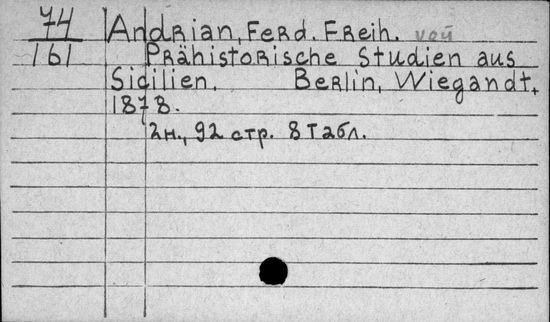 74 Andrian, Ferd. Freih. von
161 Prähistorische Studien aus
Sicilien. Berlin, Wiegandt,
1878.
2н., 92 стр. 8 табл.